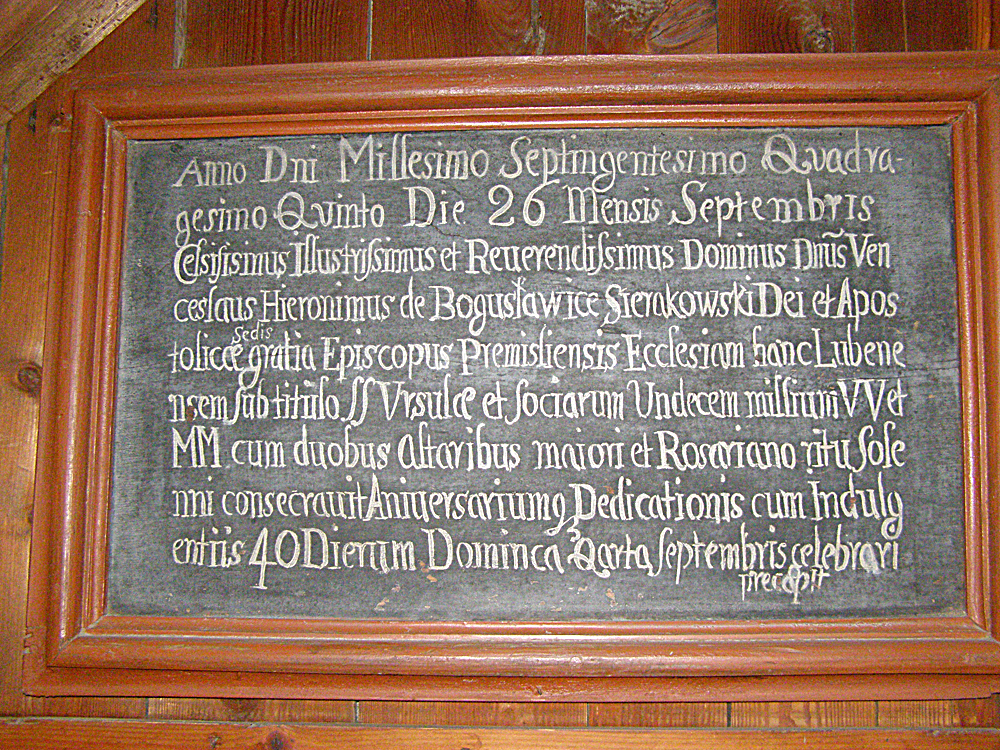 Anno Dni Millesimo Septingentesimo Quadra-
gesimo Qvinto Die. 26 Mensis Septembris
Celsissimus Illustrissimus et Reuerendissimus Dominus Dnus Ven
ceslaus Hieronimus de Bogusławice Sierakowski Dei et Apos
Sedis
tolicæ gratia Episcopus Premisliensis Ecclesiam hanc Lubene
nsem sub titulo SS Vrsulæ et sociarum Undecem millium VV et
MM cum duobus altaribus maiori et Rosariano ritu Sole
mni consecravit Aniuersariumq Dedicationis cum Indulg
entiis 40 Dierum Dominca Qarta septembris celebrari
precæpit